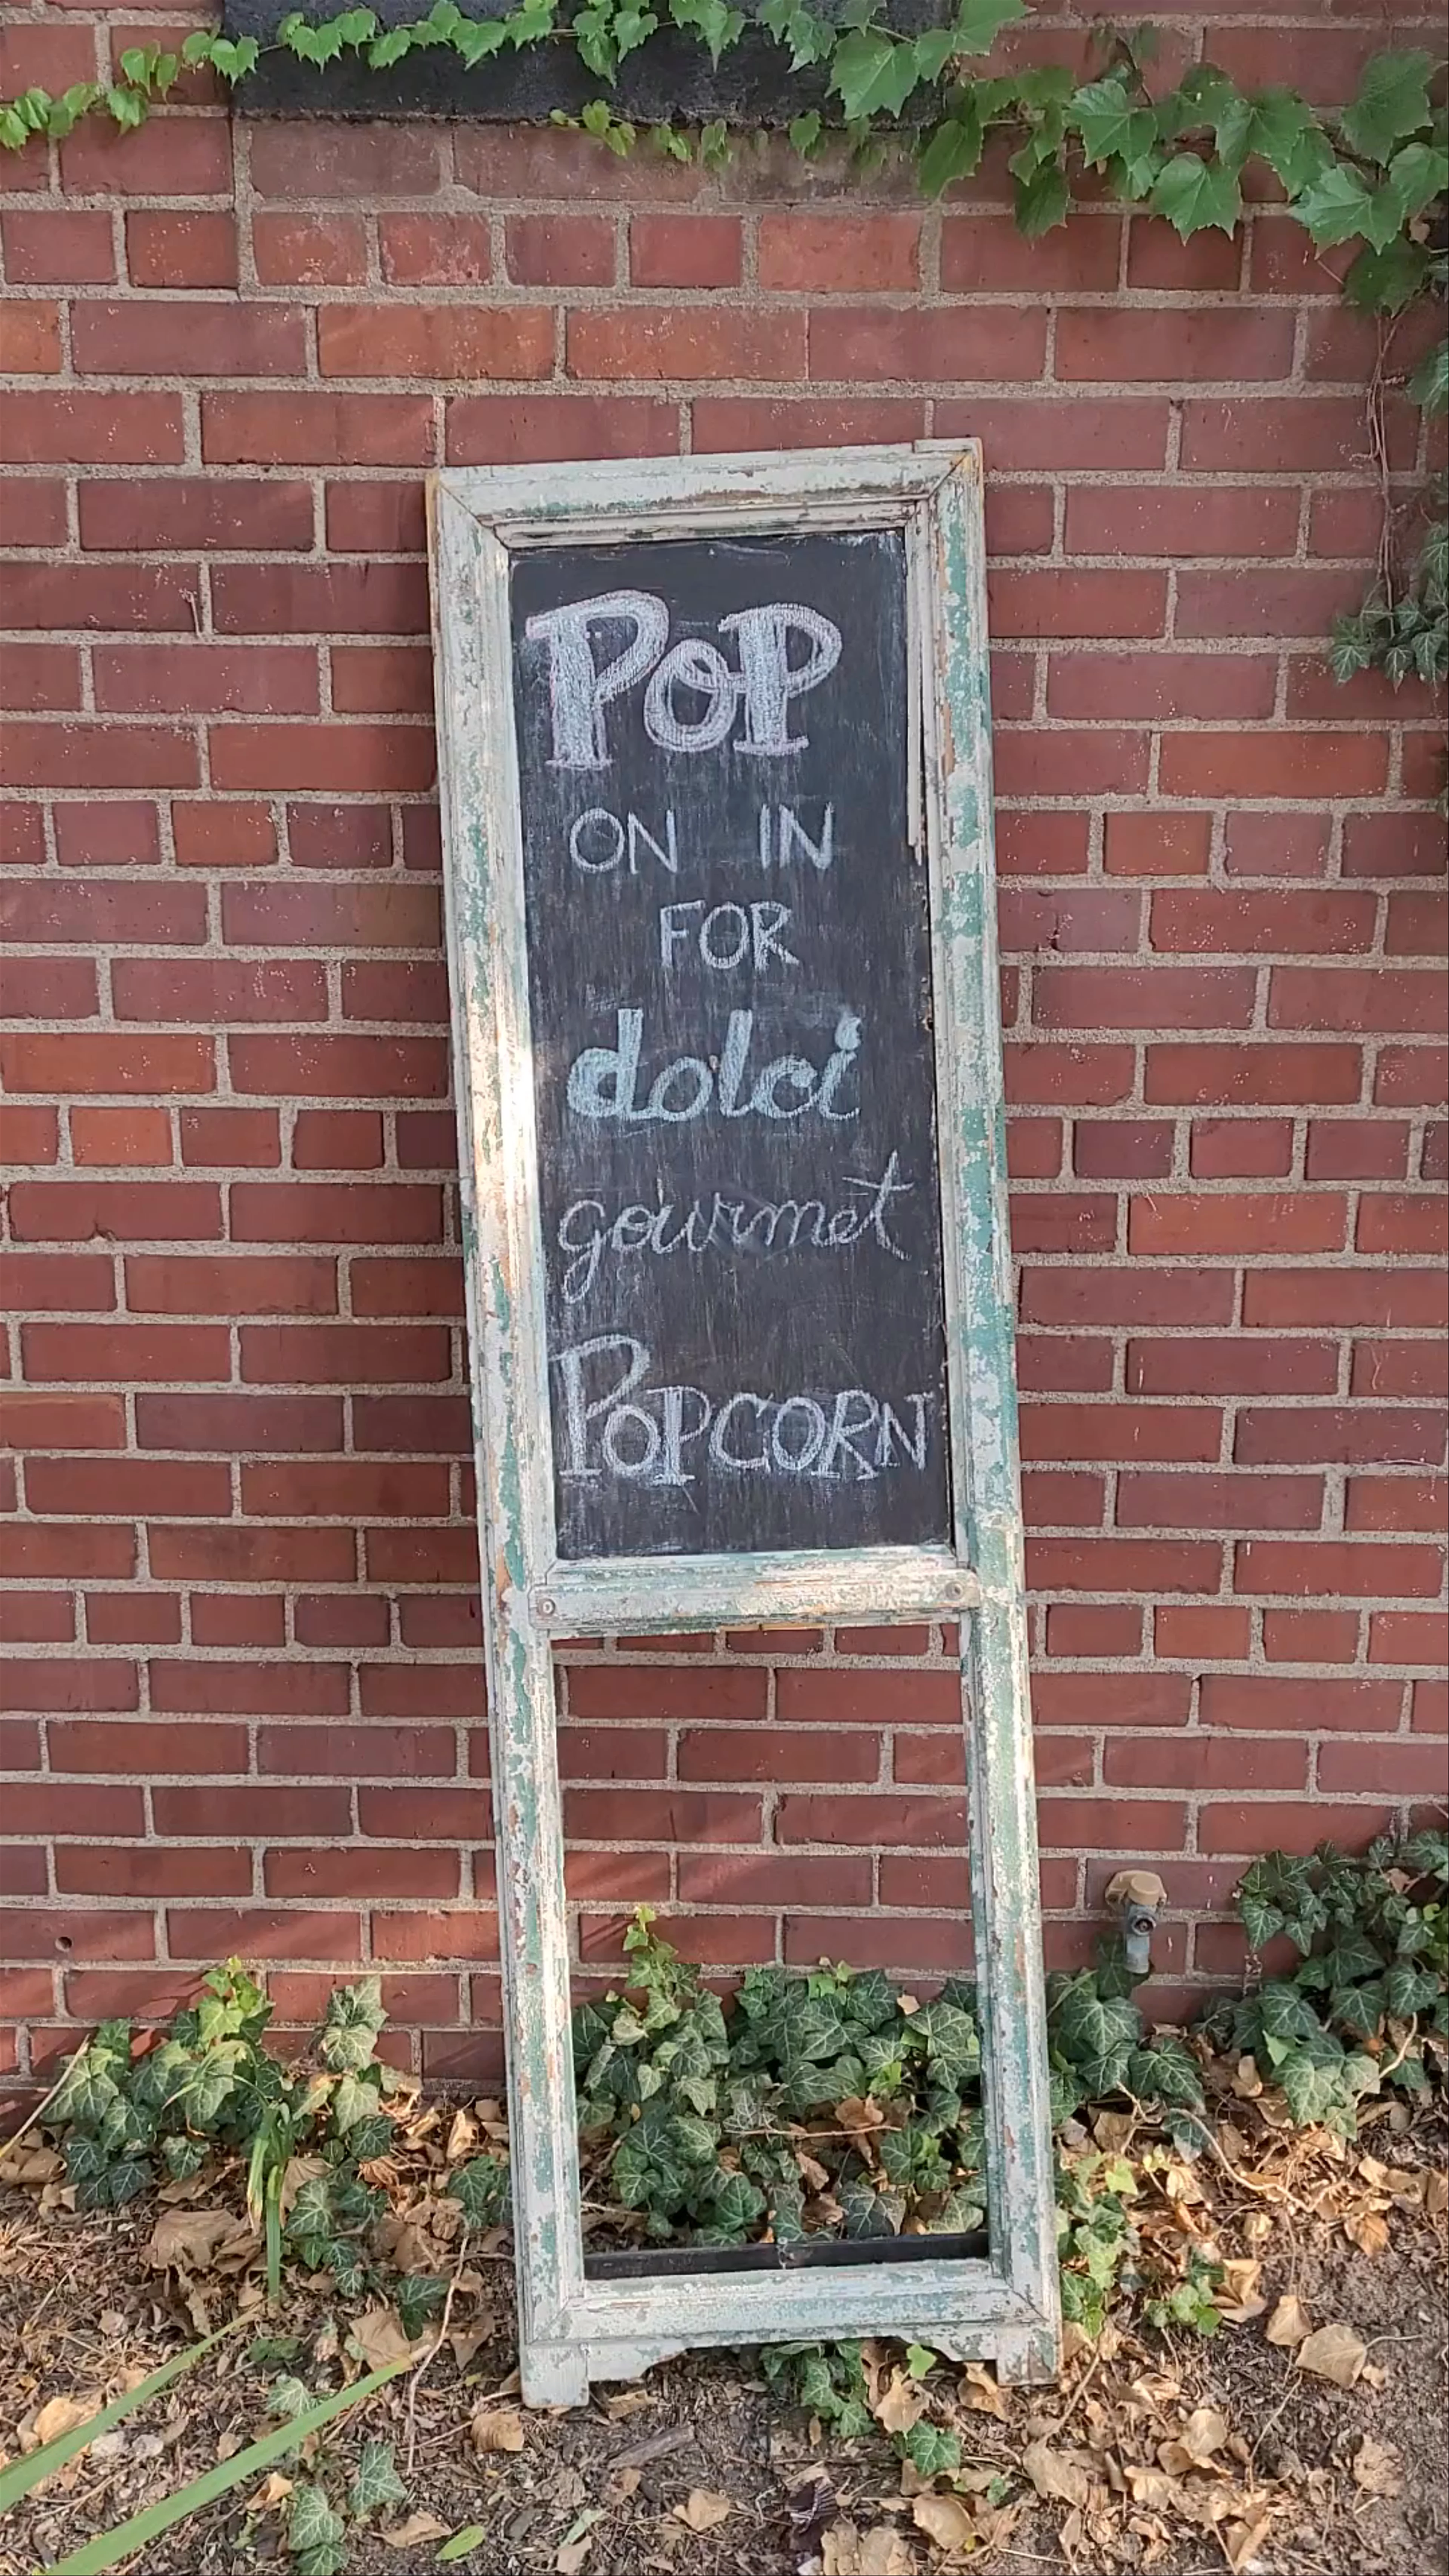 PoP
ON IN
FOR
dolci
gourmet
POPCORN